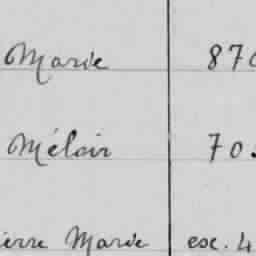 Marie 870
Méloir 70.
ierre Marie esc. 4